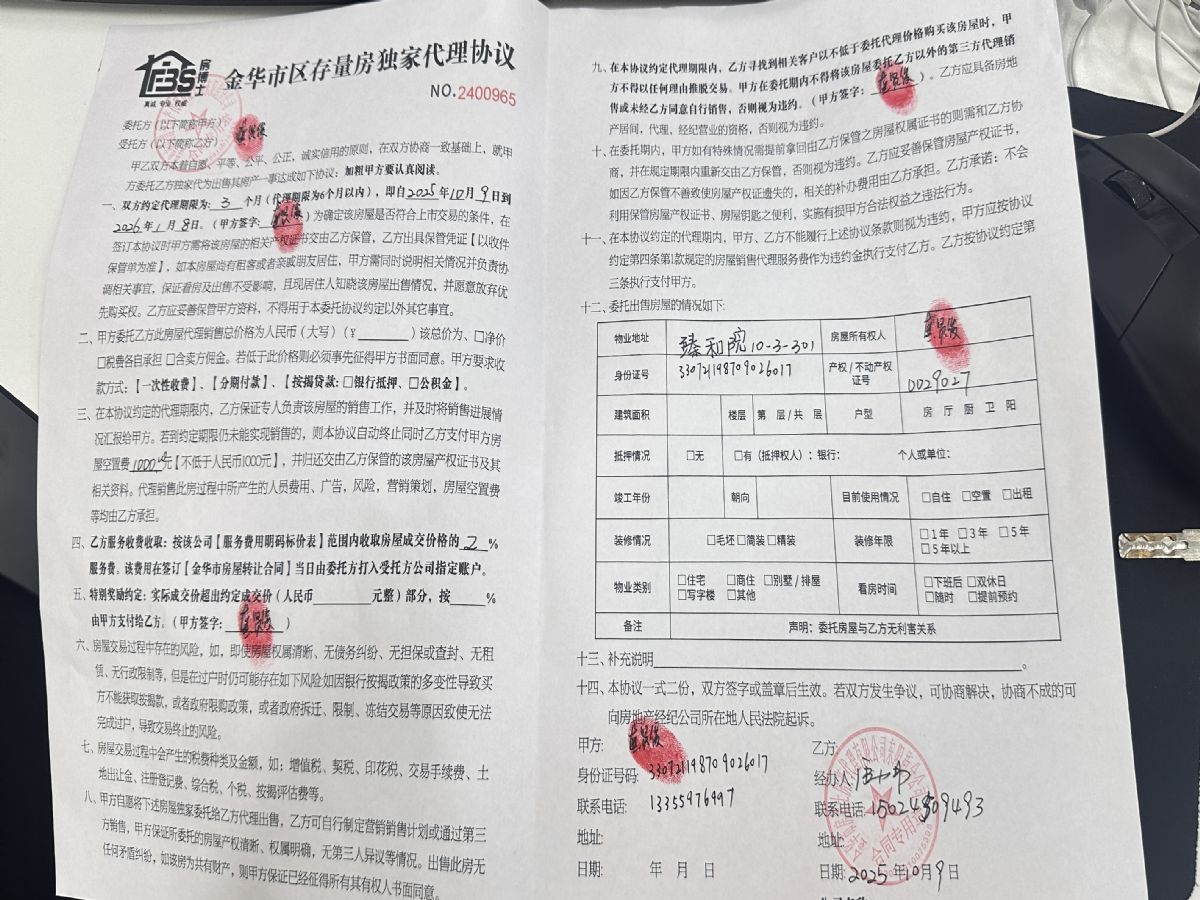 房博士
FBS
真诚 专业 权威
金华市区存量房独家代理协议
NO.2400965
委托方（以下简称甲方）
受托方（以下简称乙方）
甲乙双方本着自愿、平等、公平、公正、诚实信用的原则，在双方协商一致基础上，就甲
方委托乙方独家代为出售其房产一事达成如下协议：加粗甲方要认真阅读。
一、双方约定代理期限为：3个月（代理期限为6个月以内），即自2025年10月9日到
2026年1月8日。（甲方签字：）为确定该房屋是否符合上市交易的条件，在
签订本协议时甲方需将该房屋的相关产权证书交由乙方保管，乙方出具保管凭证【以收件
保管单为准】，如本房屋尚有租客或者亲戚朋友居住，甲方需同时说明相关情况并负责协
调相关事宜，保证看房及出售不受影响，且现居住人知晓该房屋出售情况，并愿意放弃优
先购买权。乙方应妥善保管甲方资料，不得用于本委托协议约定以外其它事宜。
二、甲方委托乙方此房屋代理销售总价格为人民币（大写）（￥________）该总价为、□净价
□税费各自承担 □含卖方佣金。若低于此价格则必须事先征得甲方书面同意。甲方要求收
款方式：【一次性收费】、【分期付款】、【按揭贷款：□银行抵押、□公积金】。
三、在本协议约定的代理期限内，乙方保证专人负责该房屋的销售工作，并及时将销售进展情
况汇报给甲方。若到约定期限仍未能实现销售的，则本协议自动终止同时乙方支付甲方房
屋空置费1000元【不低于人民币1000元】，并归还交由乙方保管的该房屋产权证书及其
相关资料。代理销售此房过程中所产生的人员费用、广告，风险，营销策划，房屋空置费
等均由乙方承担。
四、乙方服务收费收取：按该公司【服务费用明码标价表】范围内收取房屋成交价格的2%
服务费。该费用在签订【金华市房屋转让合同】当日由委托方打入受托方公司指定账户。
五、特别奖励约定：实际成交价超出约定成交价（人民币________元整）部分，按____%
由甲方支付给乙方。（甲方签字：）
六、房屋交易过程中存在的风险，如，即使房屋权属清晰、无债务纠纷、无担保或查封、无租
赁、无行政限制等，但是在过户时仍可能存在如下风险如因银行按揭政策的多变性导致买
方不能获取按揭款，或者政府限购政策，或者政府拆迁、限制、冻结交易等原因致使无法
完成过户，导致交易终止的风险。
七、房屋交易过程中会产生的税费种类及金额，如：增值税、契税、印花税、交易手续费、土
地出让金、注册登记费、综合税、个税、按揭评估费等。
八、甲方自愿将下述房屋独家委托给乙方代理出售，乙方可自行制定营销销售计划或通过第三
方销售，甲方保证所委托的房屋产权清晰、权属明确，无第三人异议等情况。出售此房无
任何矛盾纠纷，如该房为共有财产，则甲方保证已经征得所有其有权人书面同意。
九、在本协议约定代理期限内，乙方寻找到相关客户以不低于委托代理价格购买该房屋时，甲
方不得以任何理由推脱交易。甲方在委托期内不得将该房屋委托乙方以外的第三方代理销
售或未经乙方同意自行销售，否则视为违约。（甲方签字：）。乙方应具备房地
产居间，代理，经纪营业的资格，否则视为违约。
十、在委托期内，甲方如有特殊情况需提前拿回由乙方保管之房屋权属证书的则需和乙方协
商，并在规定期限内重新交由乙方保管，否则视为违约。乙方应妥善保管房屋产权证书，
如因乙方保管不善致使房屋产权证遗失的，相关的补办费用由乙方承担。乙方承诺：不会
利用保管房屋产权证书、房屋钥匙之便利，实施有损甲方合法权益之违法行为。
十一、在本协议约定的代理期内，甲方、乙方不能履行上述协议条款则视为违约，甲方应按协议
约定第四条第1款规定的房屋销售代理服务费作为违约金执行支付乙方。乙方按协议约定第
三条执行支付甲方。
十二、委托出售房屋的情况如下：
物业地址 臻和院10-3-301 房屋所有权人
身份证号 330721198709026017 产权/不动产权证号 0029027
建筑面积 楼层 第 层/共 层 户型 房 厅 厨 卫 阳
抵押情况 □无 □有（抵押权人）：银行： 个人或单位：
竣工年份 朝向 目前使用情况 □自住 □空置 □出租
装修情况 □毛坯 □简装 □精装 装修年限 □1年 □3年 □5年 □5年以上
物业类别 □住宅 □商住 □别墅/排屋 □写字楼 □其他 看房时间 □下班后 □双休日 □随时 □提前预约
备注 声明：委托房屋与乙方无利害关系
十三、补充说明________。
十四、本协议一式二份，双方签字或盖章后生效。若双方发生争议，可协商解决，协商不成的可
向房地产经纪公司所在地人民法院起诉。
甲方：
身份证号码：330721198709026017
联系电话：13355976997
地址：
日期： 年 月 日
乙方：
经办人：
联系电话：15024509493
地址：
日期：2025年10月9日
合同专用章